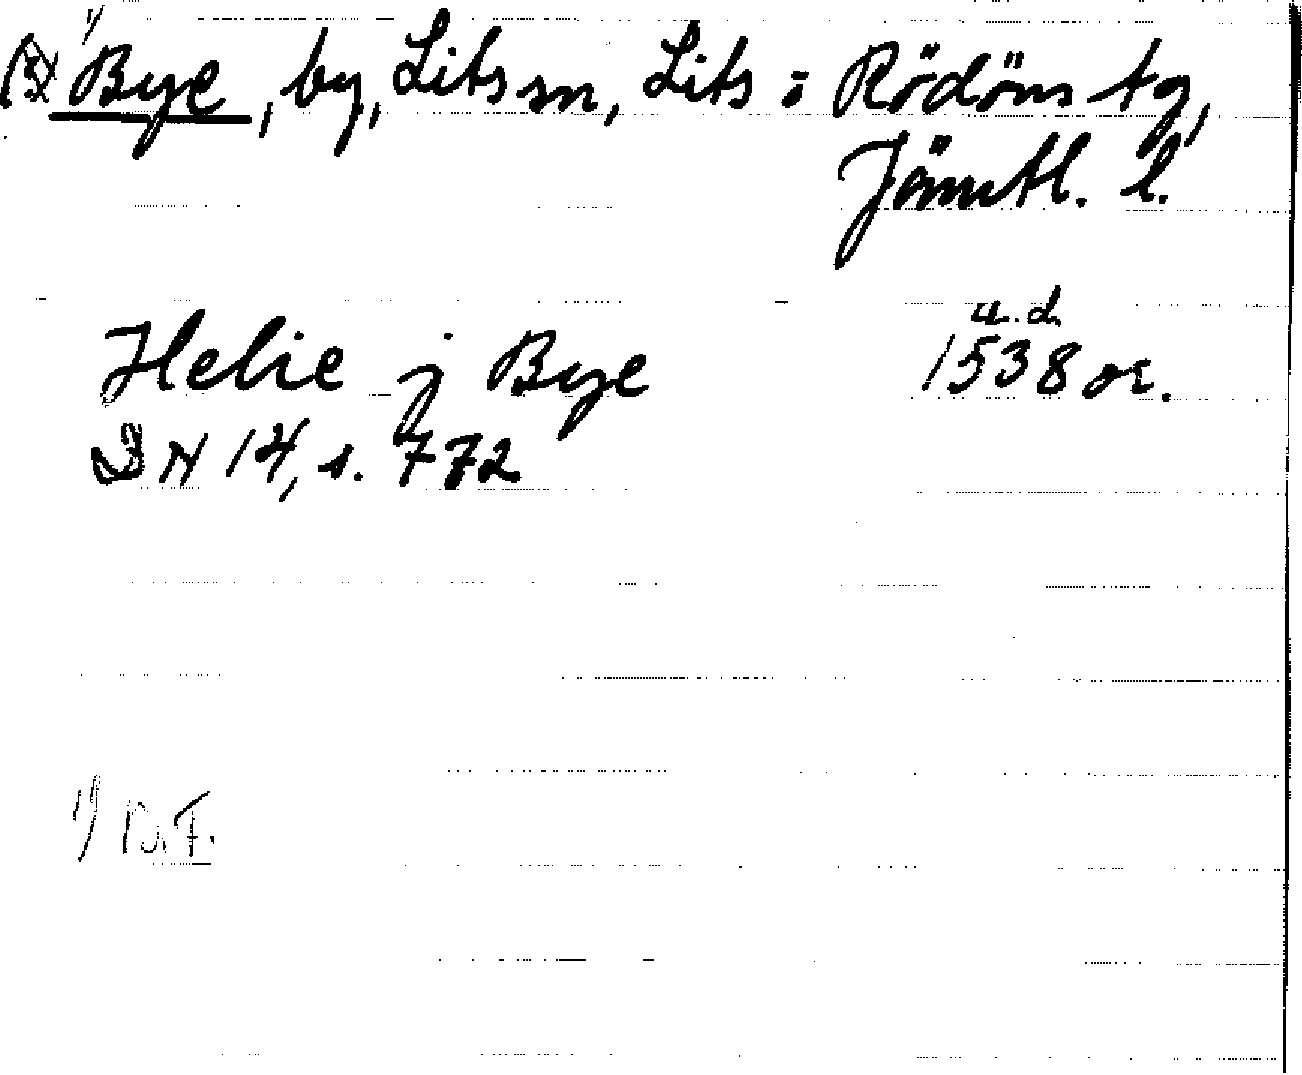 1)
Bye, by, Lits sn, Lits o Rödöns tg,
Jämtl. l.
Helie j Bye
u.d.
1538 or.
DN 14, s. 772
1) B.F.